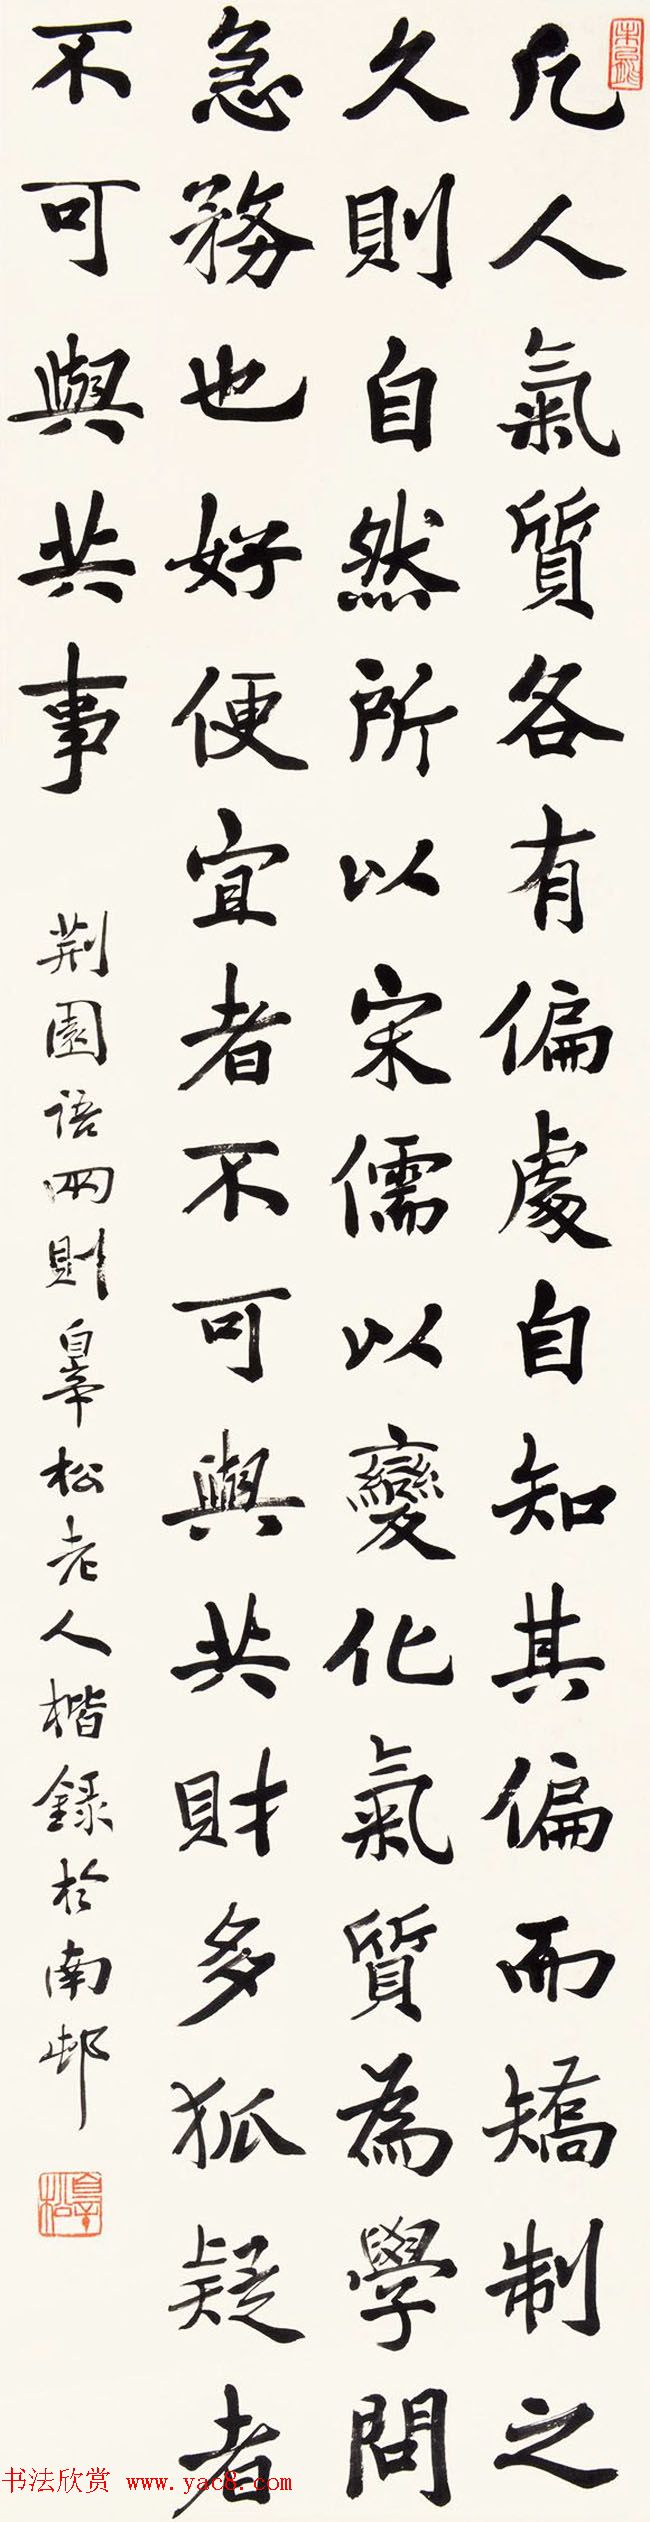 凡人氣質各有偏處自知其偏而矯制之
久則自然所以宋儒以變化氣質為學問
急務也好便宜者不可與共財多狐疑者
不可與共事
荆園語兩則皋松老人楷錄於南邨
皋松
书法欣赏 www.yac8.com